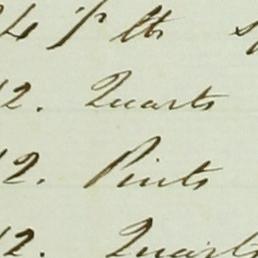 24 ℔ lb
12. Quarts
12. Pints
12. Quarts